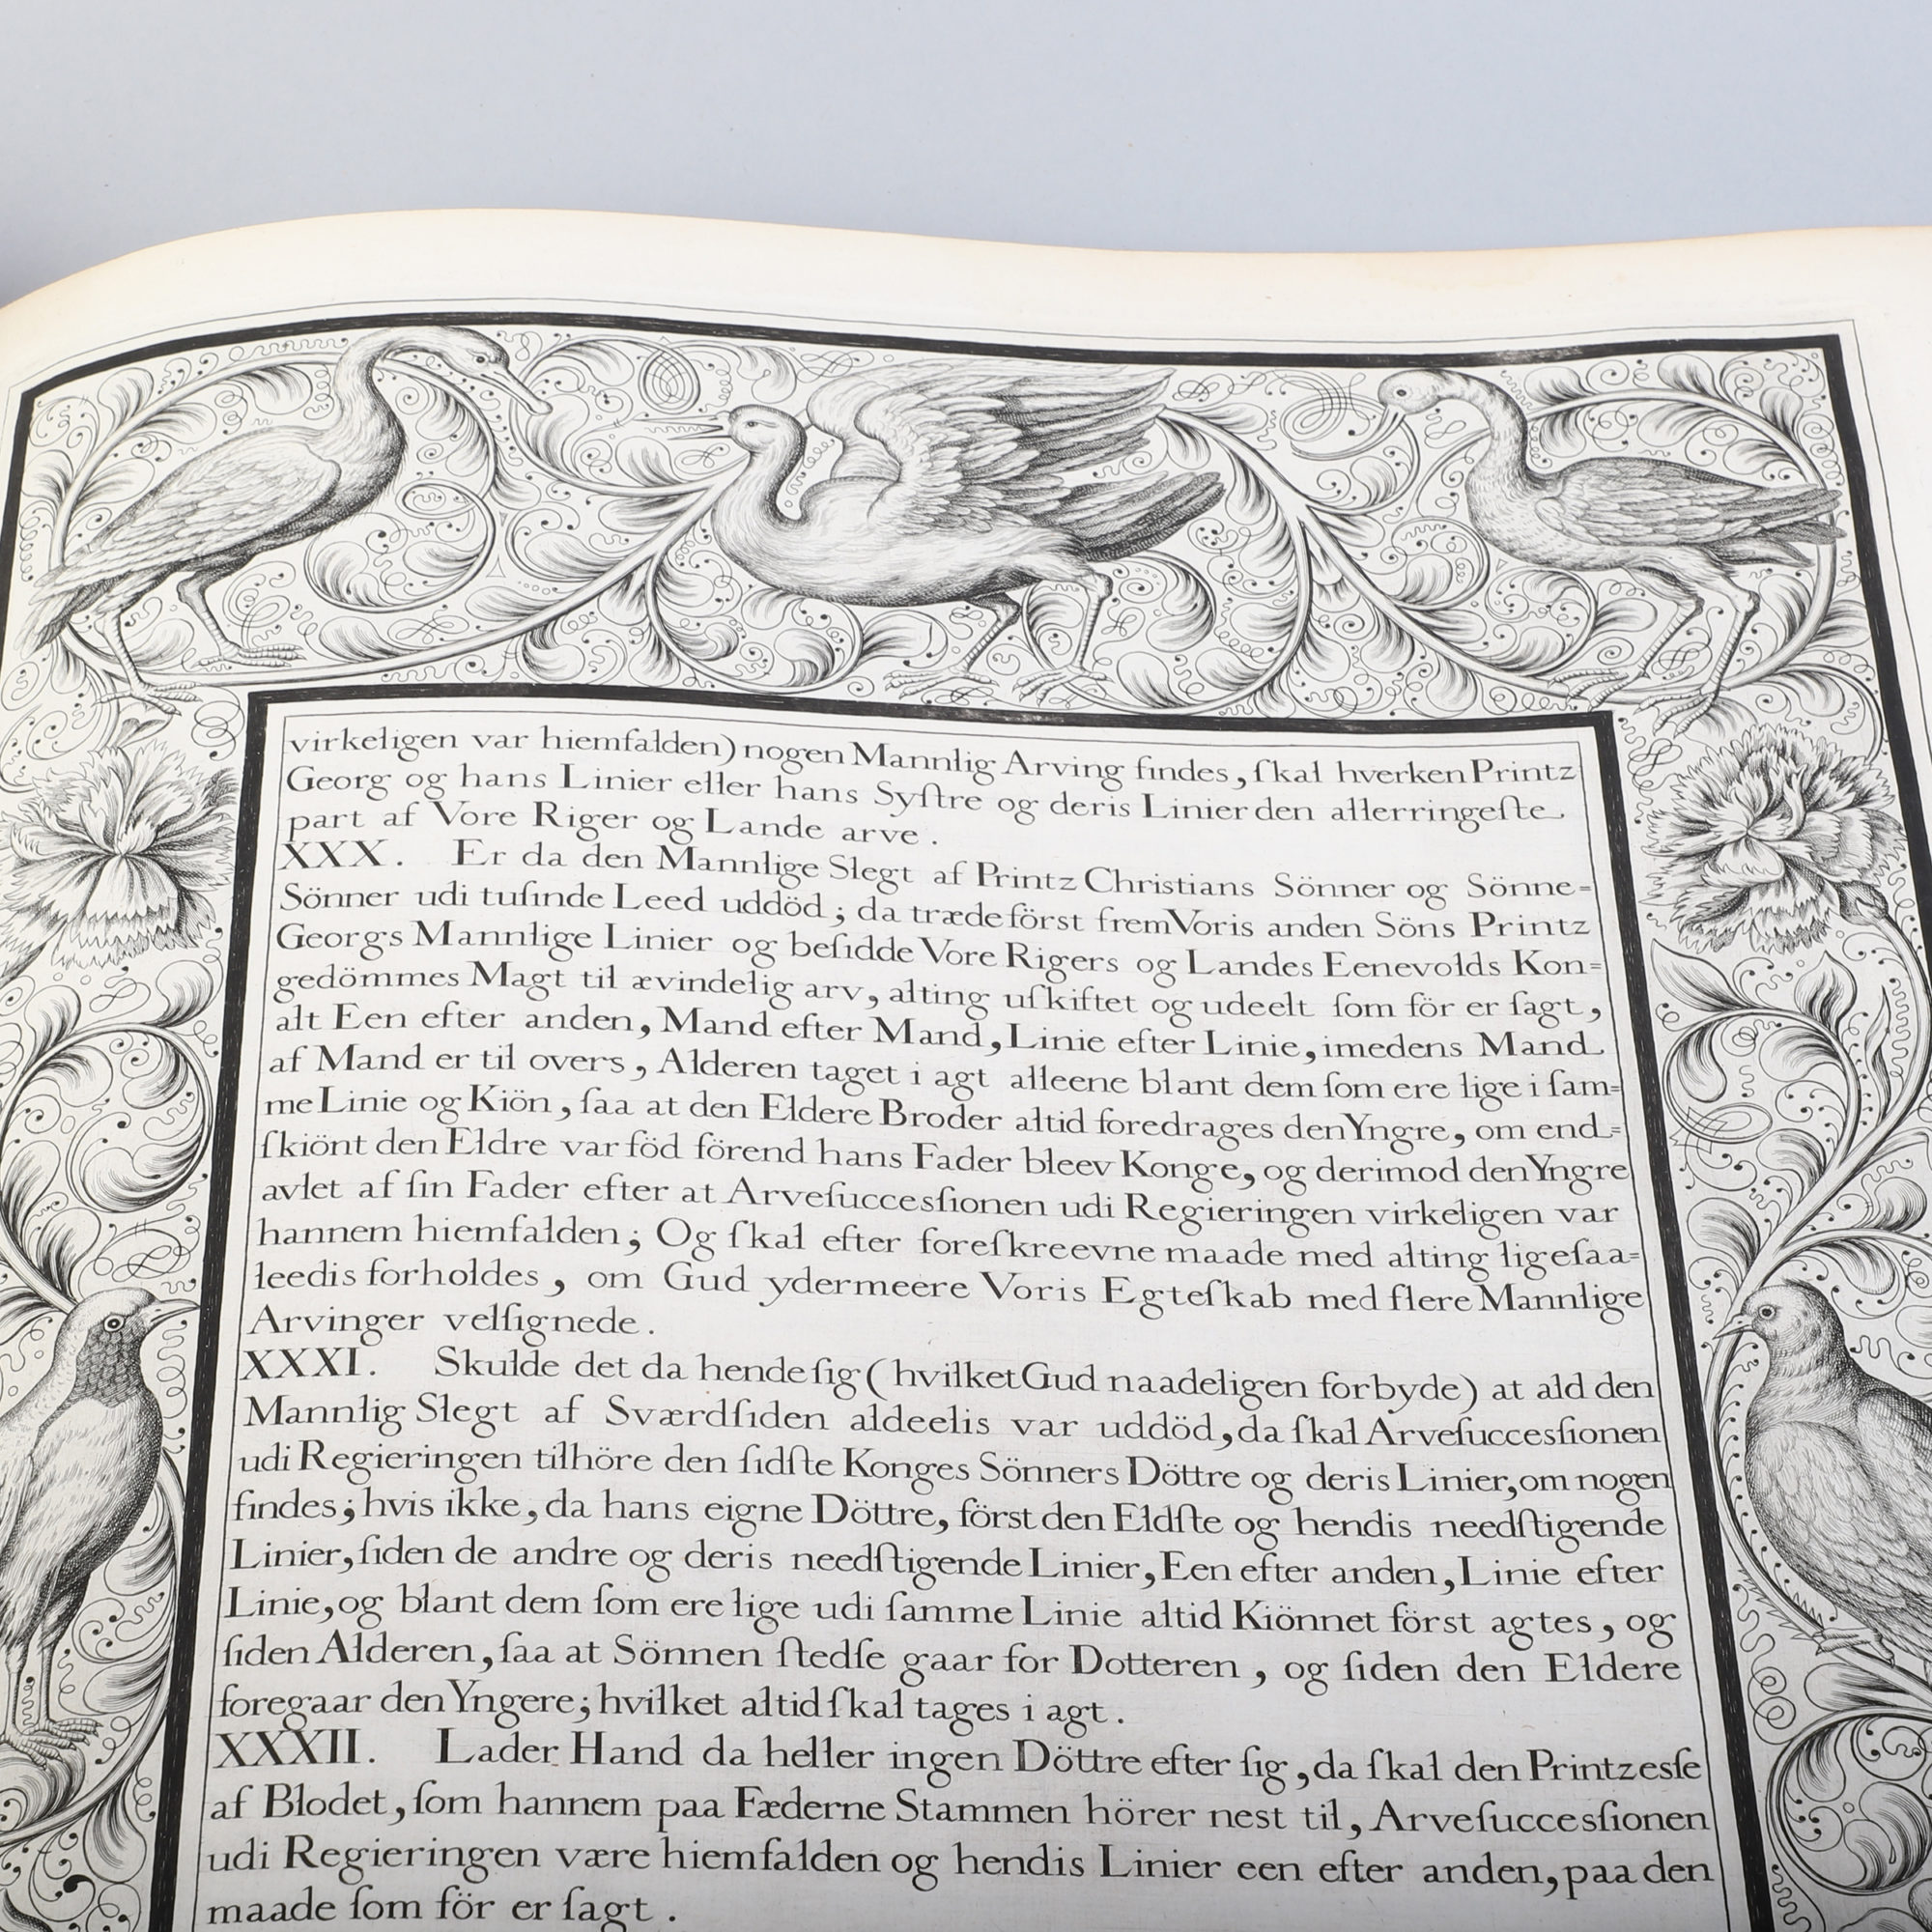 virkeligen var hiemfalden) nogen Mannlig Arving findes, ſkal hverken Printz
Georg og hans Linier eller hans Syſtre og deris Linier den allerringeſte
part af Vore Riger og Lande arve.
XXX. Er da den Mannlige Slegt af Printz Christians Sönner og Sönne=
Sönner udi tuſinde Leed uddöd; da træde först frem Voris anden Söns Printz
Georgs Mannlige Linier og beſidde Vore Rigers og Landes Eenevolds Kon=
gedömmes Magt til ævindelig arv, alting uſkiftet og udeelt ſom för er ſagt,
alt Een efter anden, Mand efter Mand, Linie efter Linie, imedens Mand
af Mand er til overs, Alderen taget i agt alleene blant dem ſom ere lige i ſam=
me Linie og Kiön, ſaa at den Eldere Broder altid foredrages den Yngre, om end=
ſkiönt den Eldre var föd förend hans Fader bleev Konge, og derimod den Yngre
avlet af ſin Fader efter at Arveſuccesſionen udi Regieringen virkeligen var
hannem hiemfalden; Og ſkal efter foreſkreevne maade med alting ligeſaa=
leedis forholdes, om Gud ydermeere Voris Egteſkab med flere Mannlige
Arvinger velſignede.
XXXI. Skulde det da hende ſig (hvilket Gud naadeligen forbyde) at ald den
Mannlig Slegt af Sværdſiden aldeelis var uddöd, da ſkal Arveſuccesſionen
udi Regieringen tilhöre den ſidſte Konges Sönners Döttre og deris Linier, om nogen
findes; hvis ikke, da hans eigne Döttre, först den Eldſte og hendis needſtigende
Linier, ſiden de andre og deris needſtigende Linier, Een efter anden, Linie efter
Linie, og blant dem ſom ere lige udi ſamme Linie altid Kiönnet först agtes, og
ſiden Alderen, ſaa at Sönnen ſtedſe gaar for Dotteren, og ſiden den Eldere
foregaar den Yngere; hvilket altid ſkal tages i agt.
XXXII. Lader Hand da heller ingen Döttre efter ſig, da ſkal den Printzesſe
af Blodet, ſom hannem paa Fæderne Stammen hörer nest til, Arveſuccesſionen
udi Regieringen være hiemfalden og hendis Linier een efter anden, paa den
maade ſom för er ſagt.